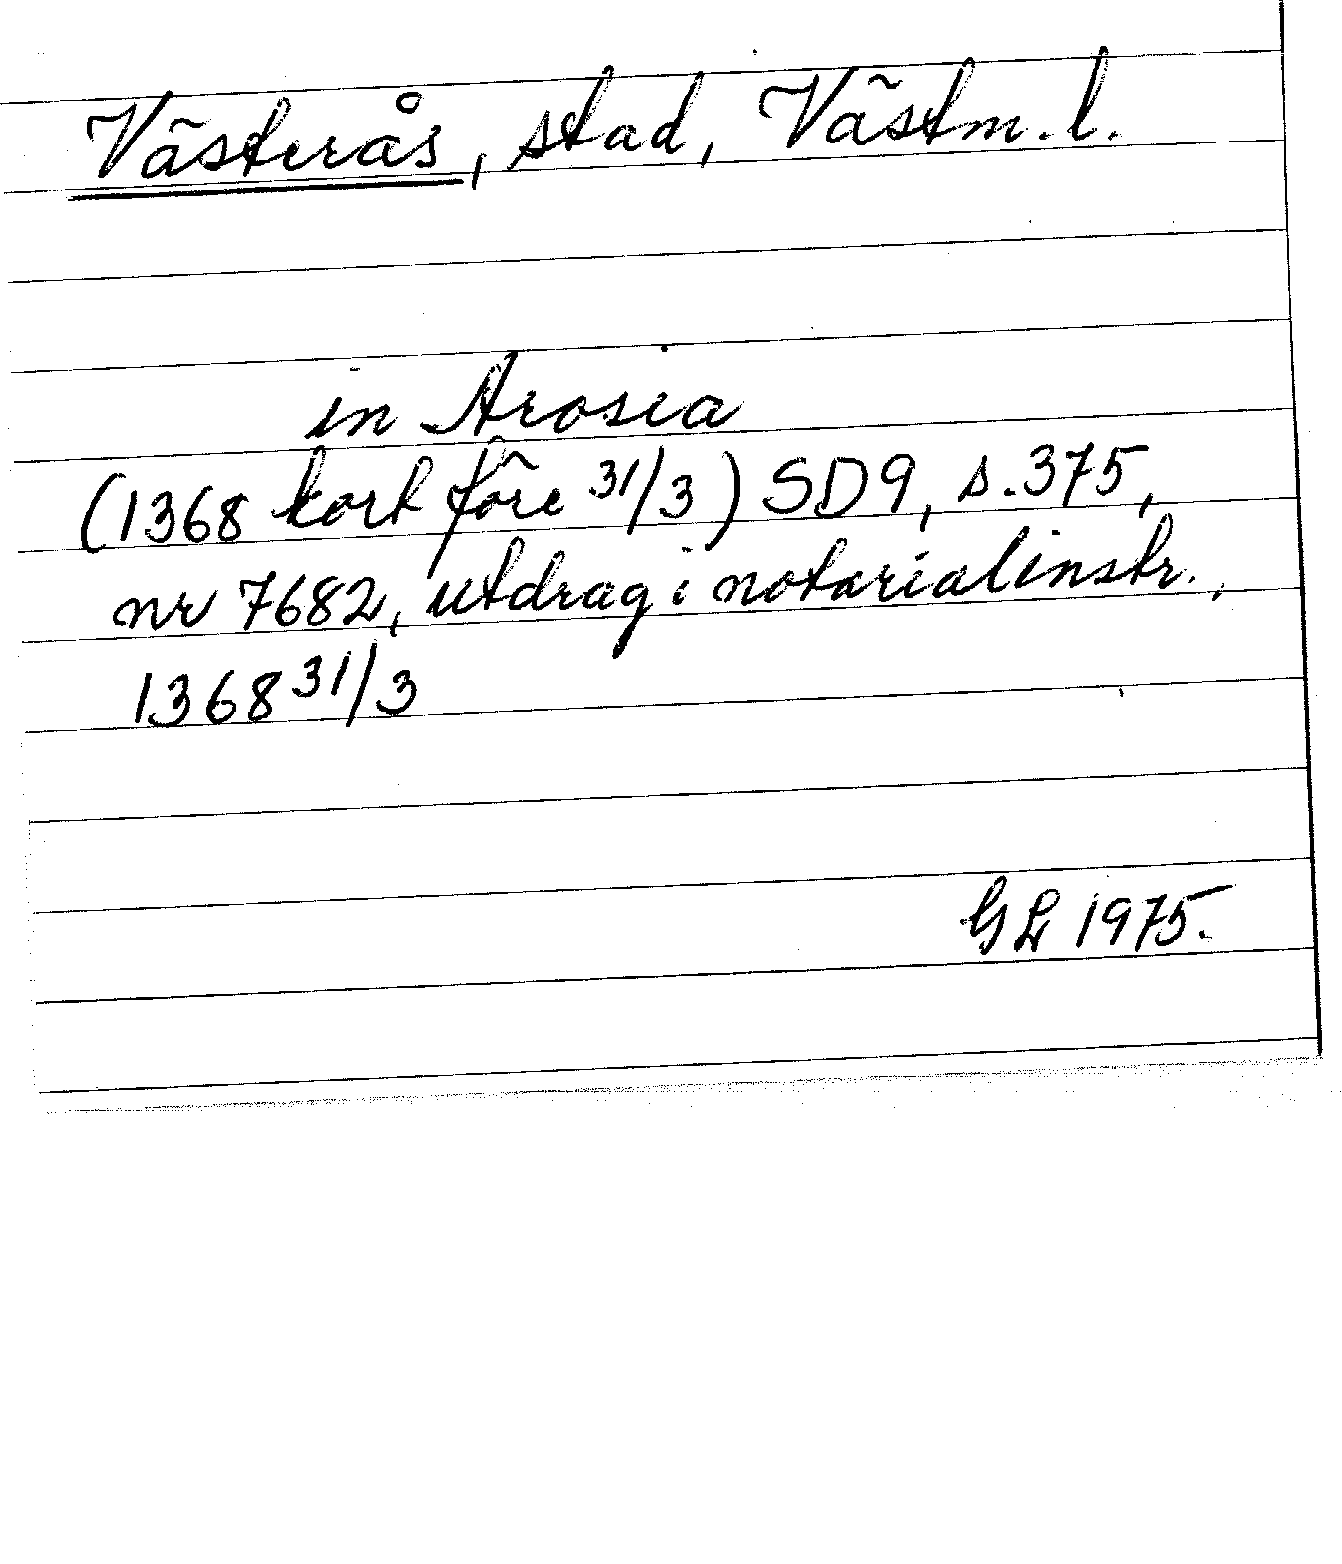 Västerås, stad, Västm. l.
in Arosia
(1368 kort före 31/3) SD9, s. 375,
nr 7682, utdrag i notarialinstr.,
1368 31/3
GL 1975.